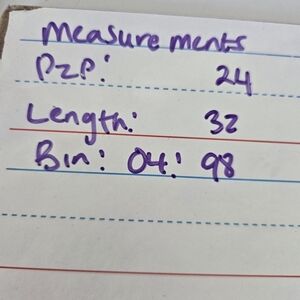 Measurements
P2P: 24
Length: 32
Bin: 04: 98